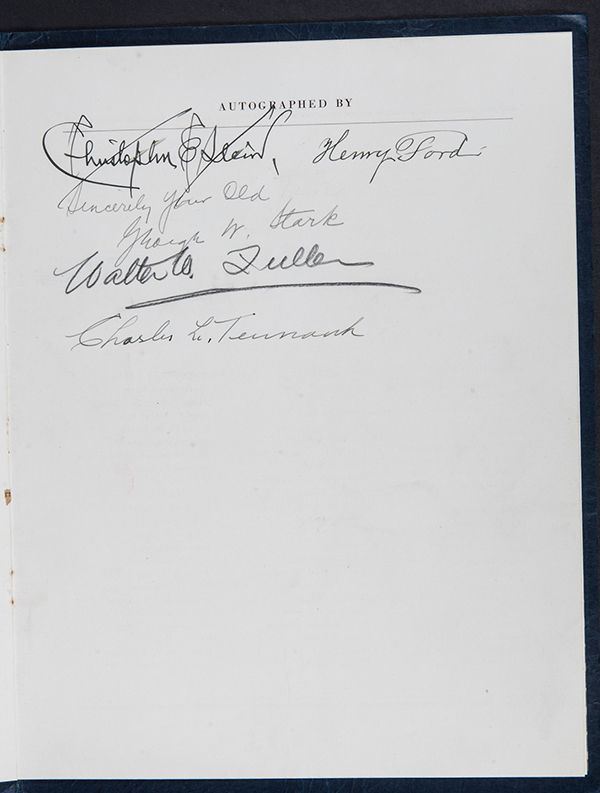 AUTOGRAPHED BY
Christopher E. Stein, Henry Ford
Sincerely Your Old
W. Stark
Walter W. Fuller
Charles L. Tennant